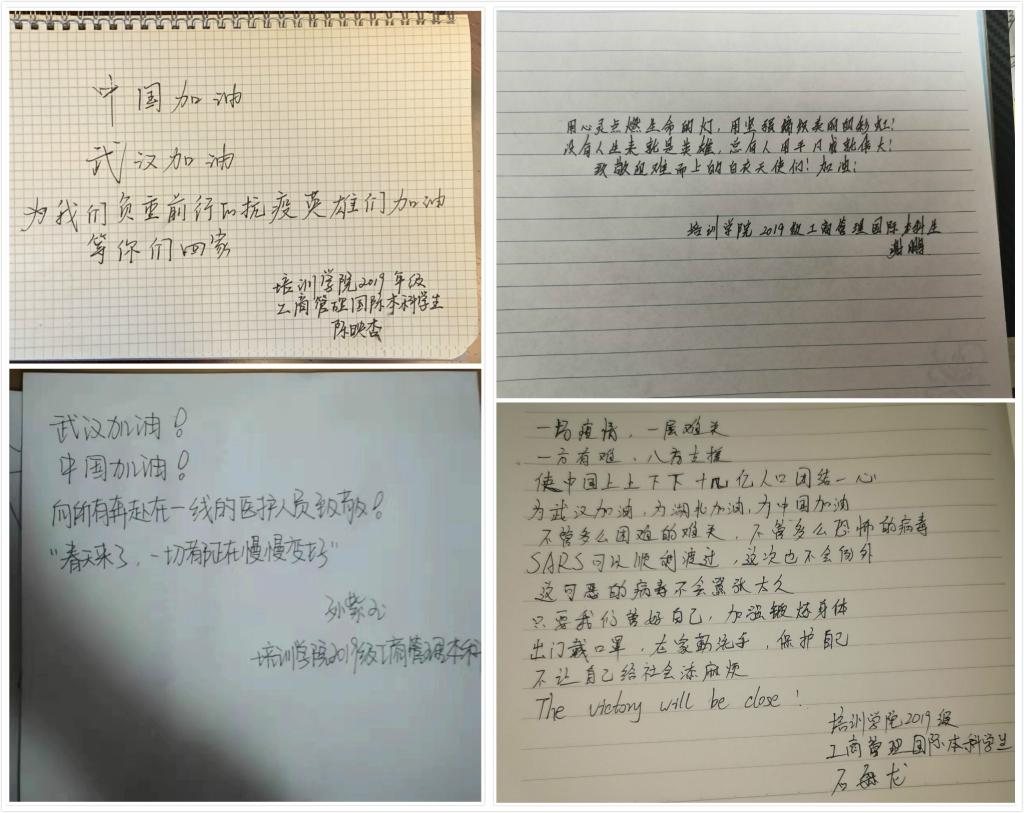 中国加油
武汉加油
为我们负重前行的抗疫英雄们加油
等你们回家
培训学院2019年级
工商管理国际本科学生
陈映杏
用心灵点燃生命的灯，用坚强铸就美丽的彩虹！
没有人生来就是英雄，总有人用平凡成就伟大！
致敬迎难而上的白衣天使们！加油！
培训学院2019级工商管理国际本科生
谢鹏
武汉加油！
中国加油！
向所有奔赴在一线的医护人员致敬！
“春天来了，一切都正在慢慢变好”
孙紫
培训学院2019级工商管理本科
一场疫情，一层难关
一方有难、八方支援
使中国上上下下十几亿人口团结一心
为武汉加油，为湖北加油，为中国加油
不管多么困难的难关，不管多么恐怖的病毒
SARS可以顺利渡过，这次也不会例外
这可恶的病毒不会嚣张太久
只要我们管好自己，加强锻炼身体
出门戴口罩，在家勤洗手，保护自己
不让自己给社会添麻烦
The victory will be close！
培训学院2019级
工商管理国际本科学生
石龙